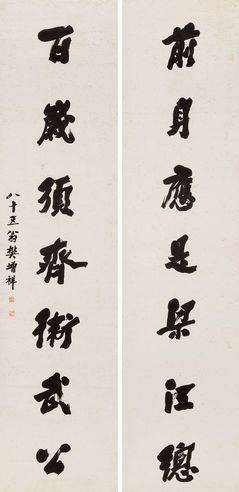 前身應是梁江總
百歲須齊衛武公
八十五翁樊增祥